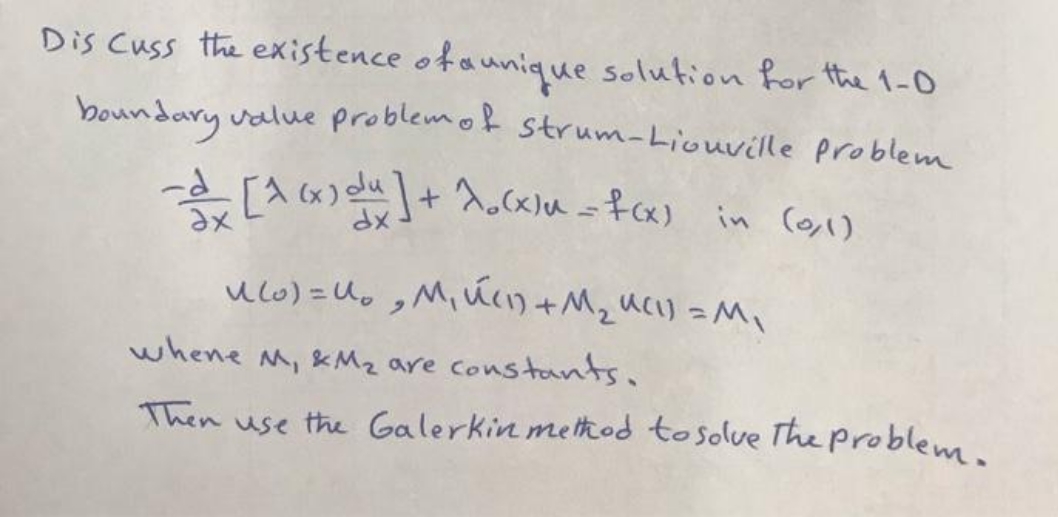 Dis Cuss the existence of a unique solution for the 1-D
boundary value problem of Strum-Liouville Problem
-d/∂x [λ(x) du/dx] + λ₀(x)u = f(x) in (0,1)
u(0) = u₀ , M₁ú(1) + M₂ u(1) = M₁
whene M₁ & M₂ are constants.
Then use the Galerkin method to solve The problem.